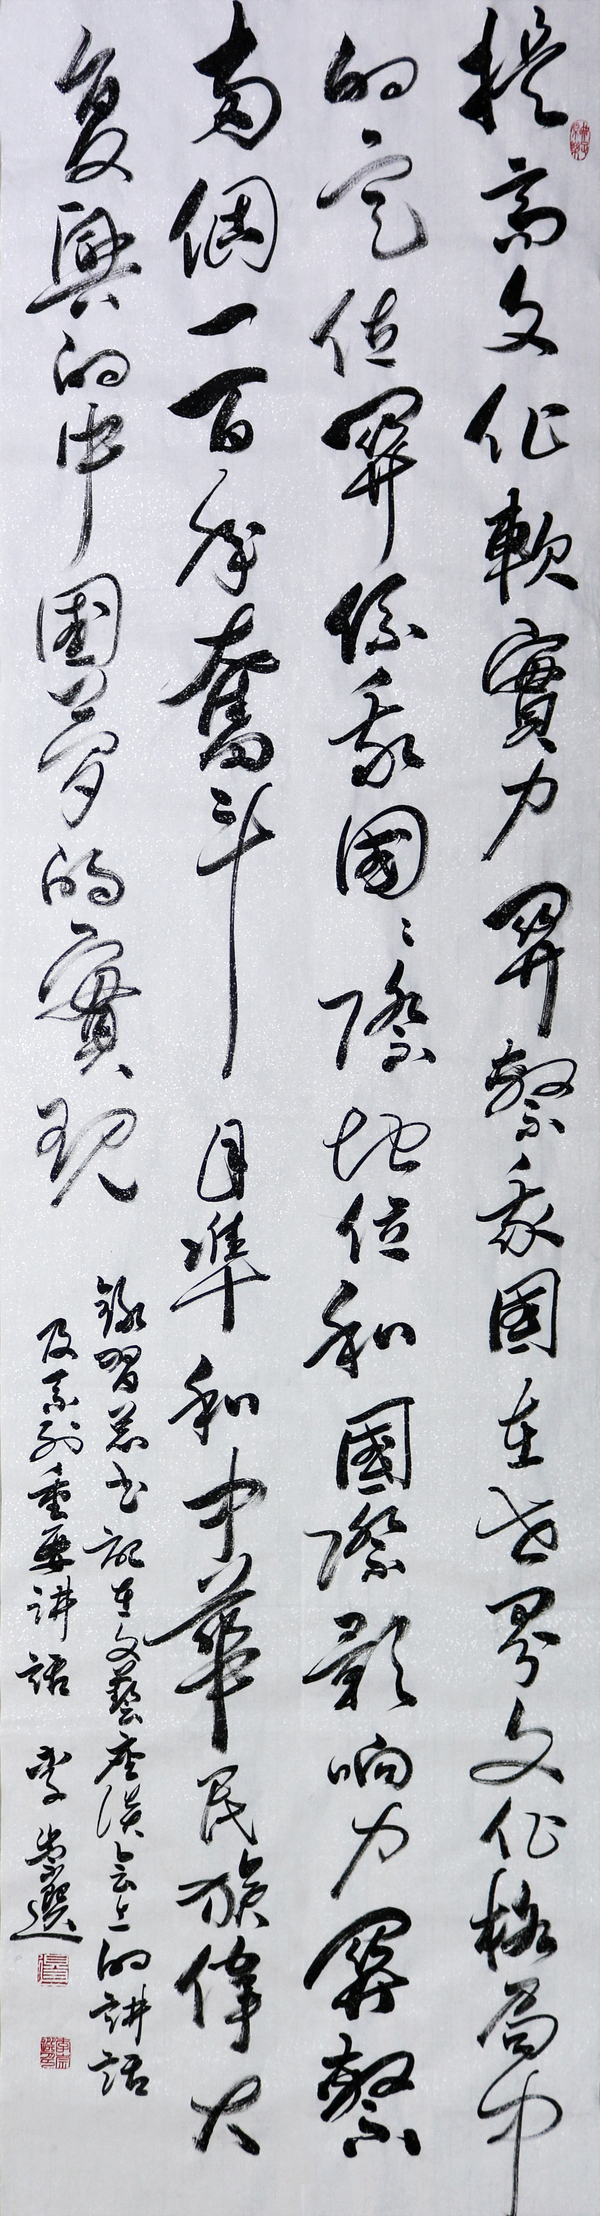 提高文化軟實力關繫我國在世界文化格局中
的定位關係我國國際地位和國際影响力關繫
両個一百年奮斗目準和中華民族偉大
复興的中國夢的實現
錄習總书記在文藝座談会上的講話
及系列重要讲話 李崇選